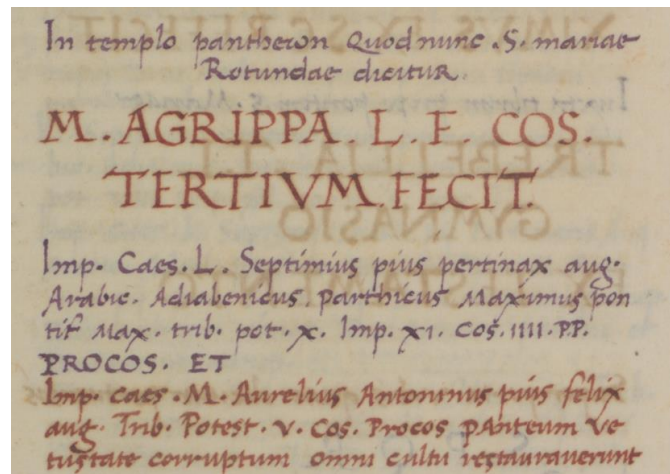 In templo pantheon Quod nunc .S. mariae
Rotundae dicitur.
M. AGRIPPA. L. F. COS.
TERTIVM. FECIT.
Imp. Caes. L. Septimius pius pertinax aug.
Arabic. Adiabenicus parthicus Maximus pon
tif Max. trib. pot. X. Imp. XI. COS. IIII. P.P.
PROCOS. ET
Imp. Caes. M. Aurelius Antoninus pius felix
aug. Trib. Potest. V. COS. Procos PANteum Ve
tustate corruptum omni cultu restauraverunt